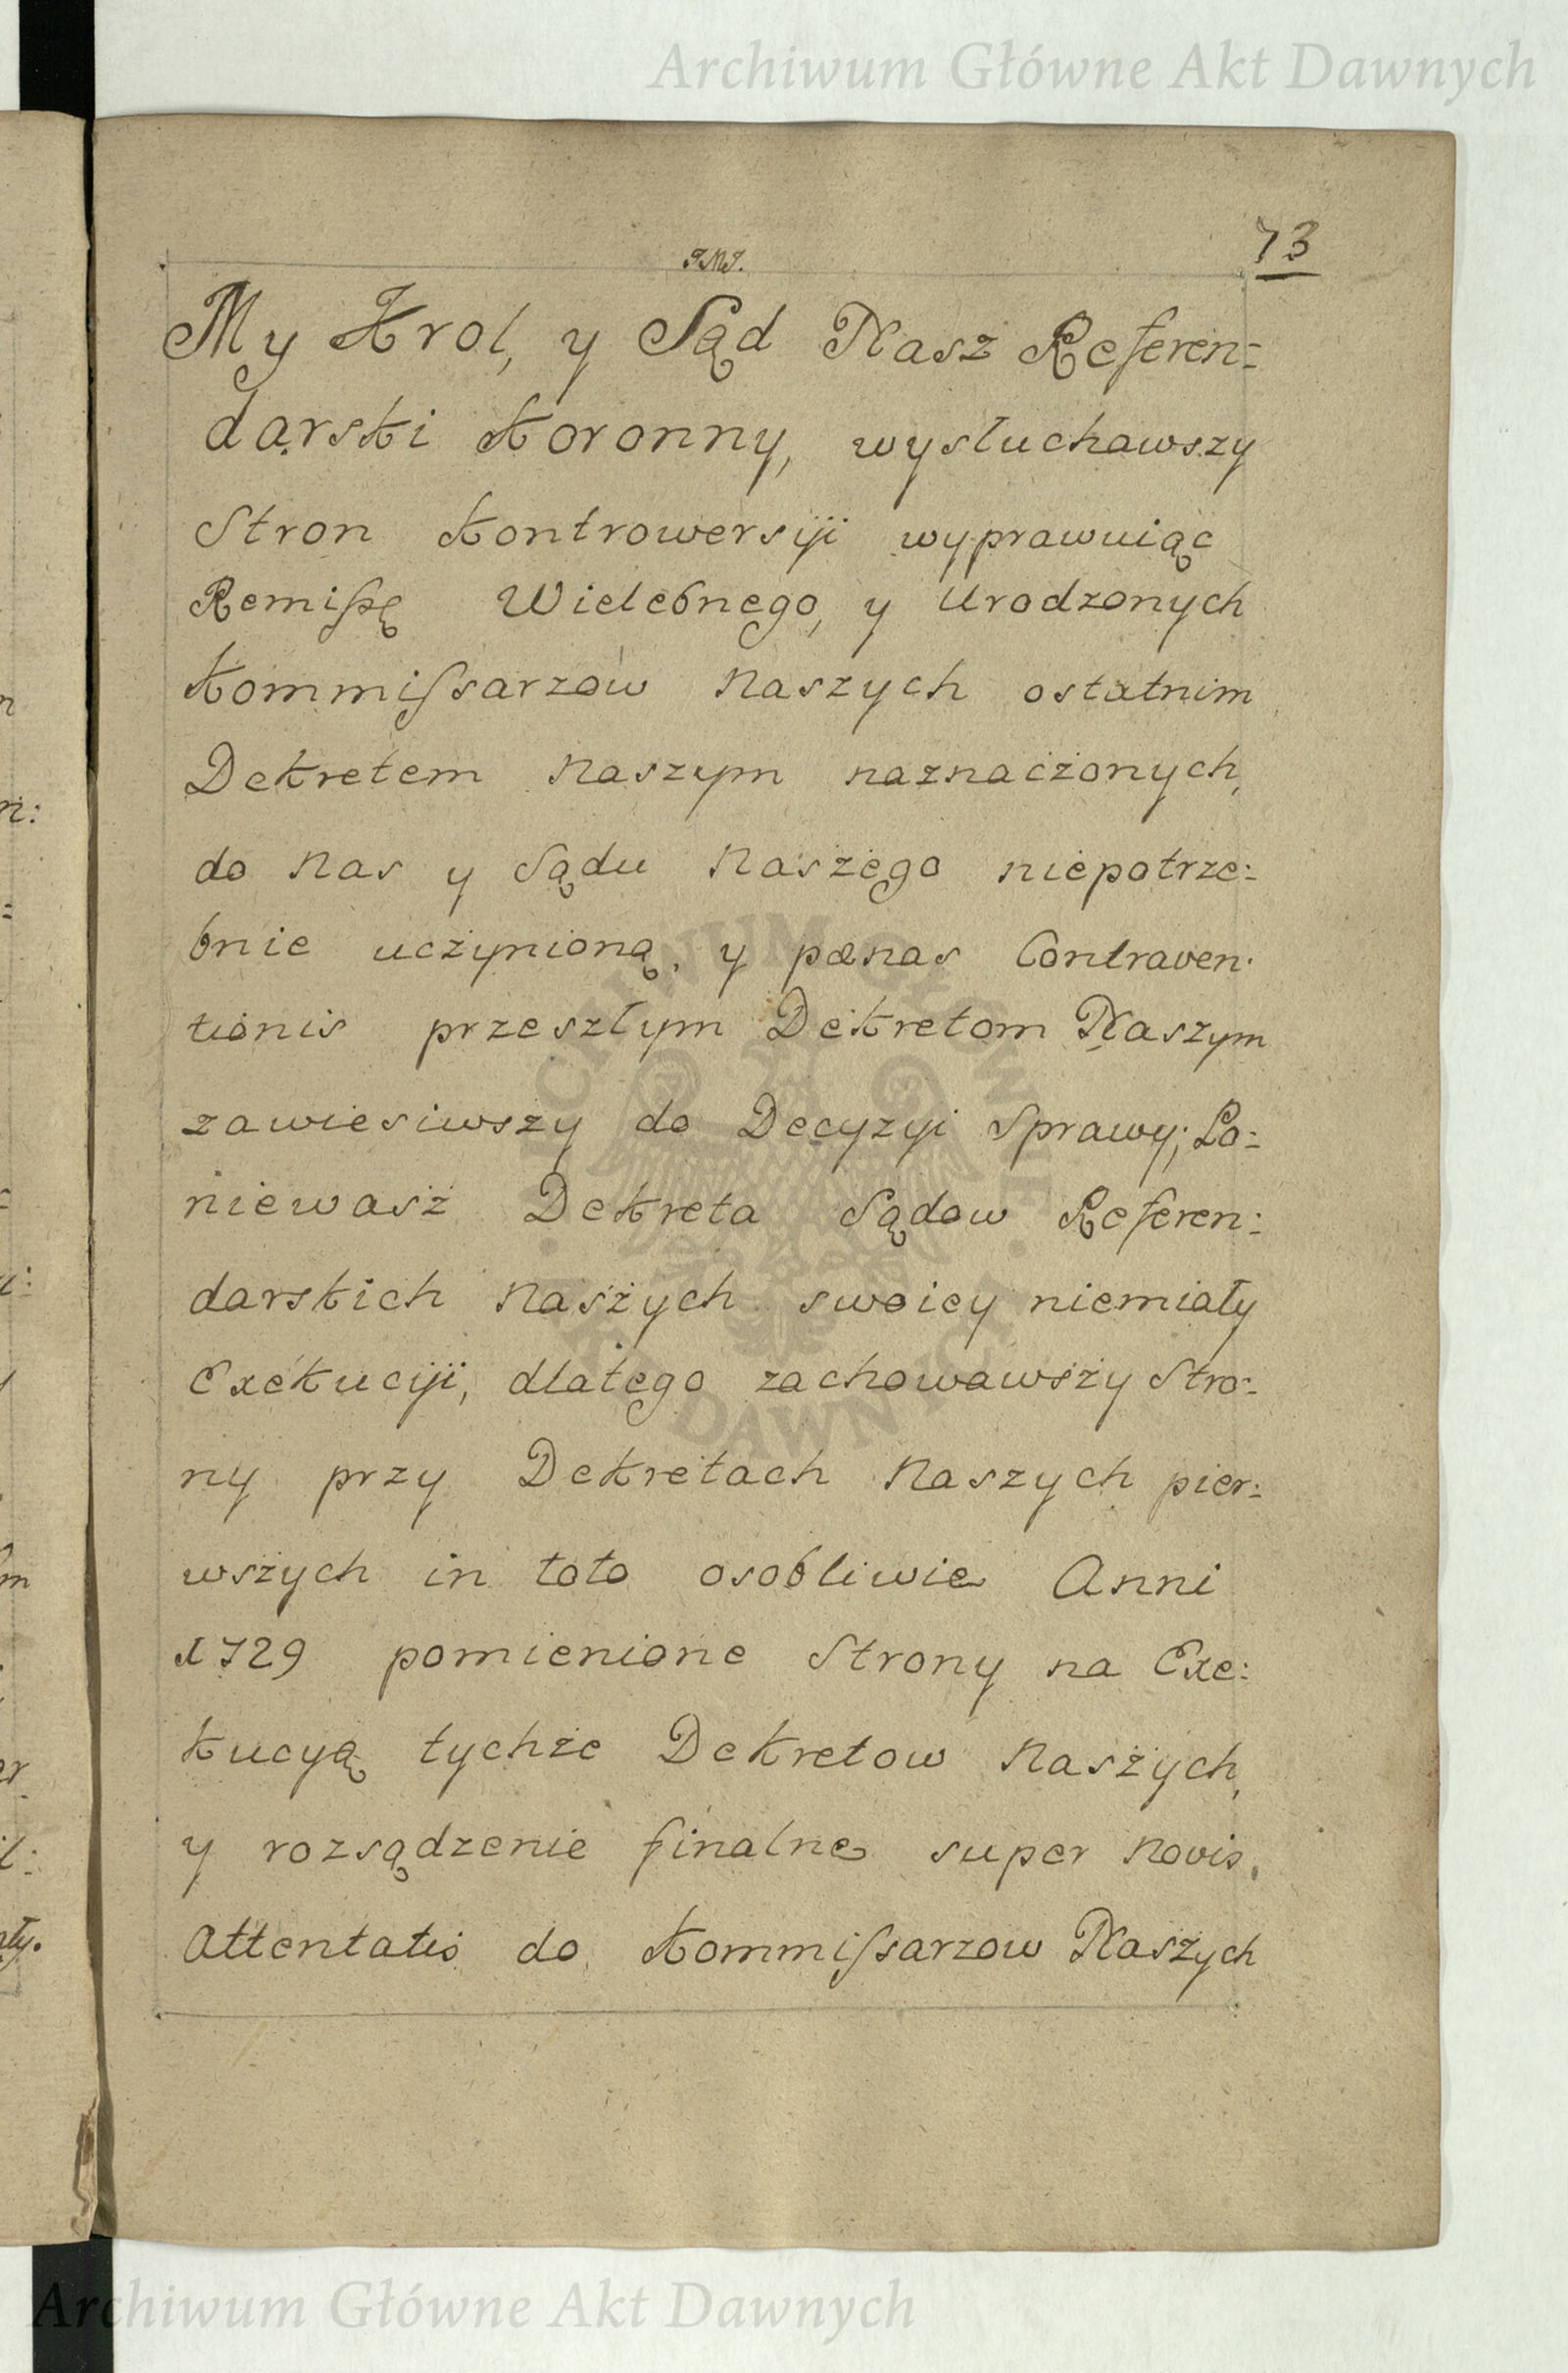 Archiwum Główne Akt Dawnych
73
J.M.J.
My Krol, y Sąd Nasz Referen=
darski Koronny, wysłuchawszy
Stron Kontrowersyji wyprawuiąc
Remissę Wielebnego, y Urodzonych
Kommissarzow Naszych ostatnim
Dekretem Naszym naznaczonych,
do Nas y Sądu Naszego niepotrze=
bnie uczynioną, y pænas Contraven=
tionis przeszłym Dekretom Naszym
zawiesiwszy do Decyzyi Sprawy; Po=
niewasz Dekreta Sądow Referen=
darskich Naszych swoiey niemiały
Exekucyji, dlatego zachowawszy Stro=
ny przy Dekretach Naszych pier=
wszych in toto osobliwie Anni
1729 pomienione Strony na Exe=
kucyą tychże Dekretow Naszych,
y rozsądzenie finalne super Novis,
Attentatis do Kommissarzow Naszych
Archiwum Główne Akt Dawnych